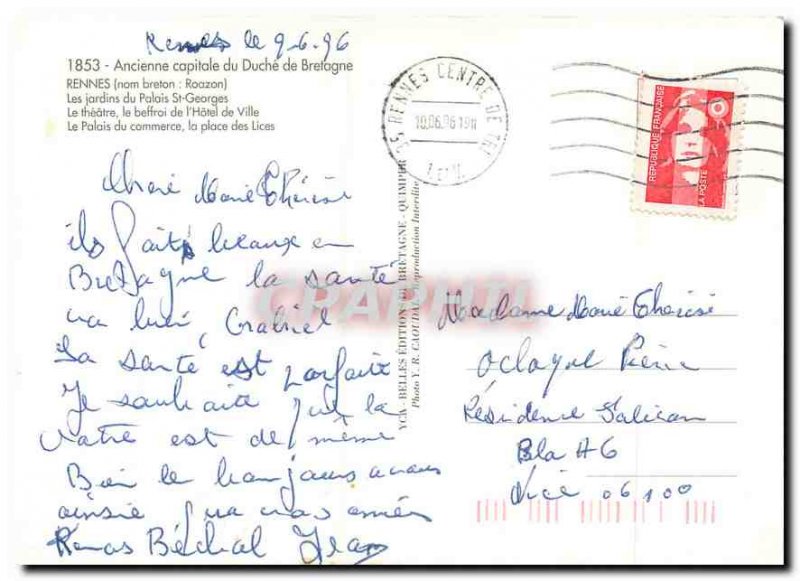 Rennes le 9-6.96
1853 - Ancienne capitale du Duché de Bretagne
RENNES (nom breton : Roazon)
Les jardins du Palais St-Georges
Le théâtre, le beffroi de l'Hôtel de Ville
Le Palais du commerce, la place des Lices
Chère Marie Thérèse
ils fait beaux en
Bretagne la santé
va bien, Gabriel
Sa santé est parfaite
Je souhaite que la
votre est de même
Bien le bonjours a vous
ainsie
Béchal Jean
35 RENNES CENTRE DE TRI
10.06.96 19H
REPUBLIQUE FRANÇAISE
LA POSTE
YCA - BELLES ÉDITIONS DE BRETAGNE - QUIMPER
Photo Y. R. CAOUDAL - Reproduction Interdite
CPAPHIL
Madame Marie Thérèse
Résidence
06100